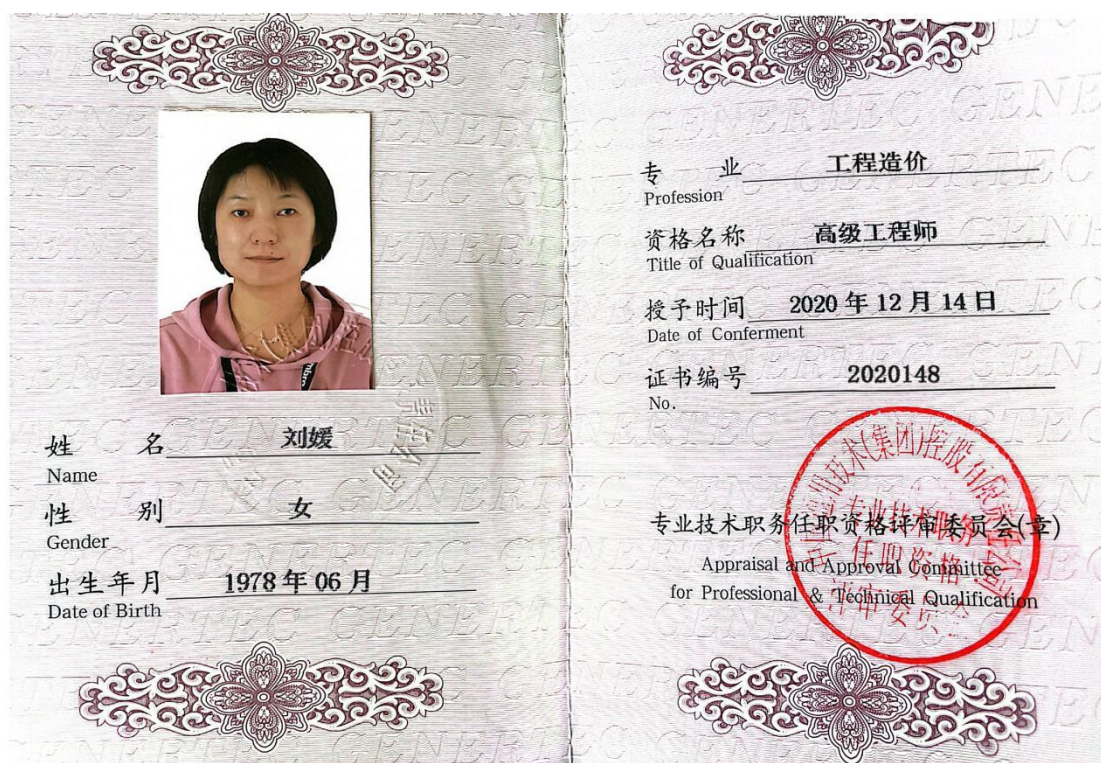 姓 名 刘媛
Name
性 别 女
Gender
出生年月 1978年06月
Date of Birth
专 业 工程造价
Profession
资格名称 高级工程师
Title of Qualification
授予时间 2020年12月14日
Date of Conferment
证书编号 2020148
No.
专业技术职务任职资格评审委员会(章)
Appraisal and Approval Committee
for Professional & Technical Qualification
中国通用技术(集团)控股有限责任公司
专业技术职务
任职资格
评审委员会
GENERTEC